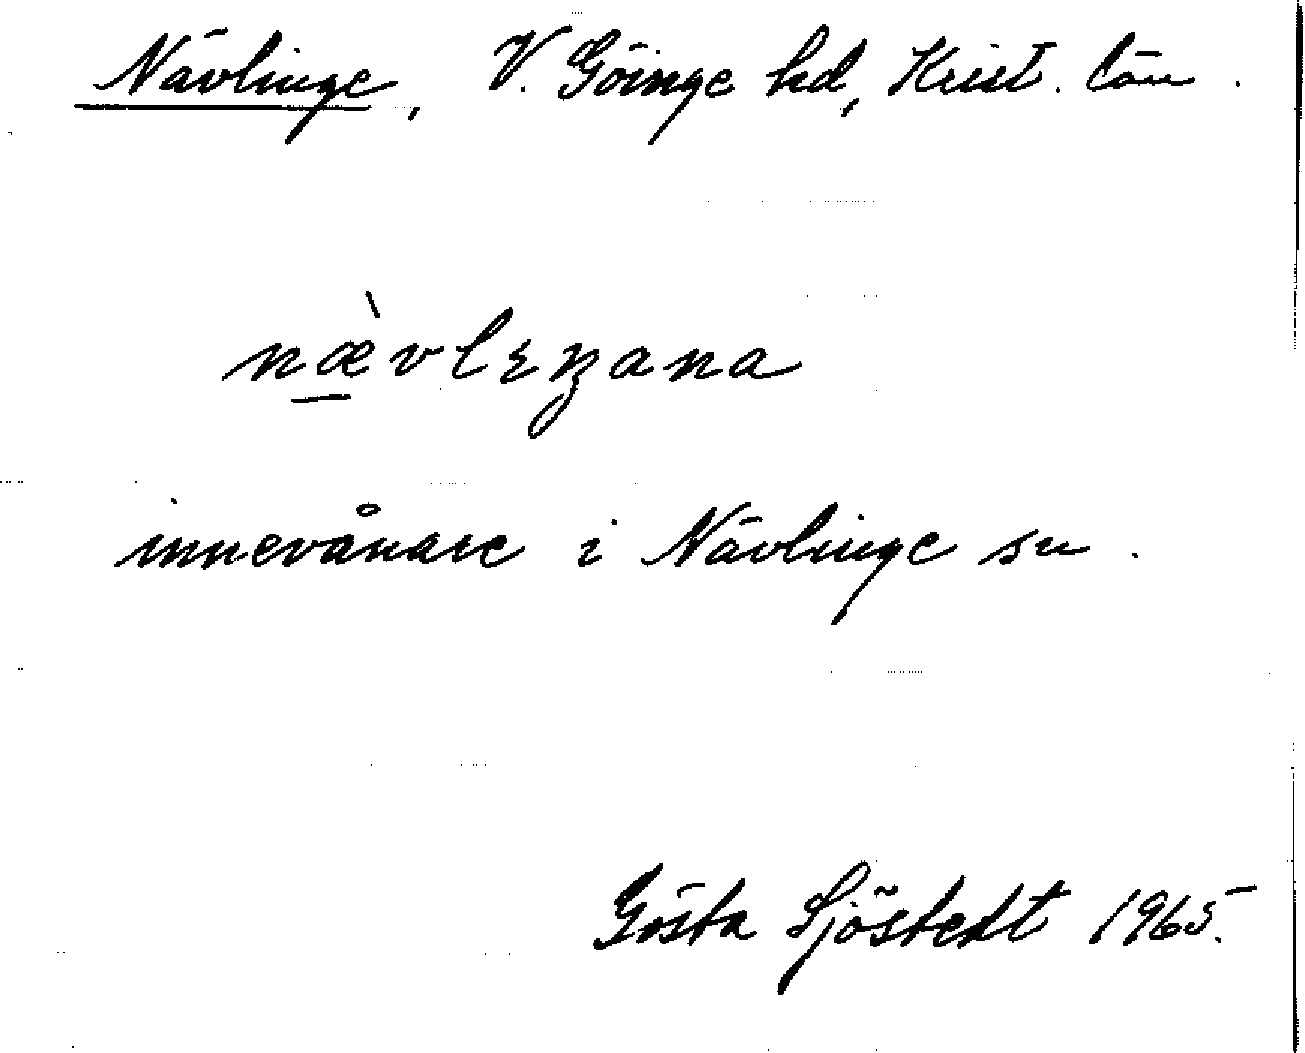 Nävlinge, V. Göinge hd, Krist. län.
næ̠̀vlɛŋana
innevånare i Nävlinge sn.
Gösta Sjöstedt 1965.